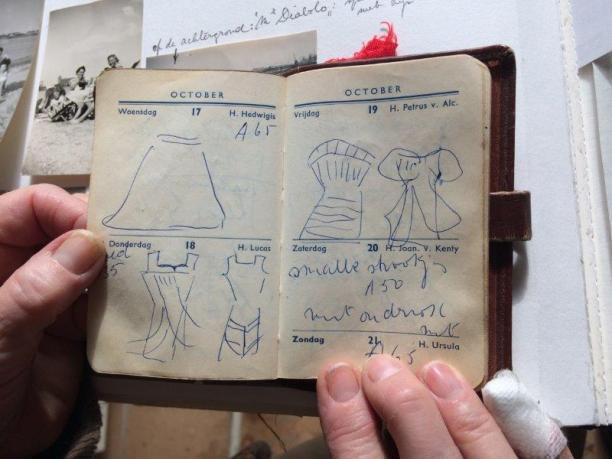 op de achtergrond: "Mr Diabolo":
met
OCTOBER
Woensdag 17 H. Hedwigis
A 65
Donderdag 18 H. Lucas
OCTOBER
Vrijdag 19 H. Petrus v. Alc.
Zaterdag 20 H. Joan. v. Kenty
smalle strookjes
A 50
met onderrok
met
Zondag 21 H. Ursula
A 65